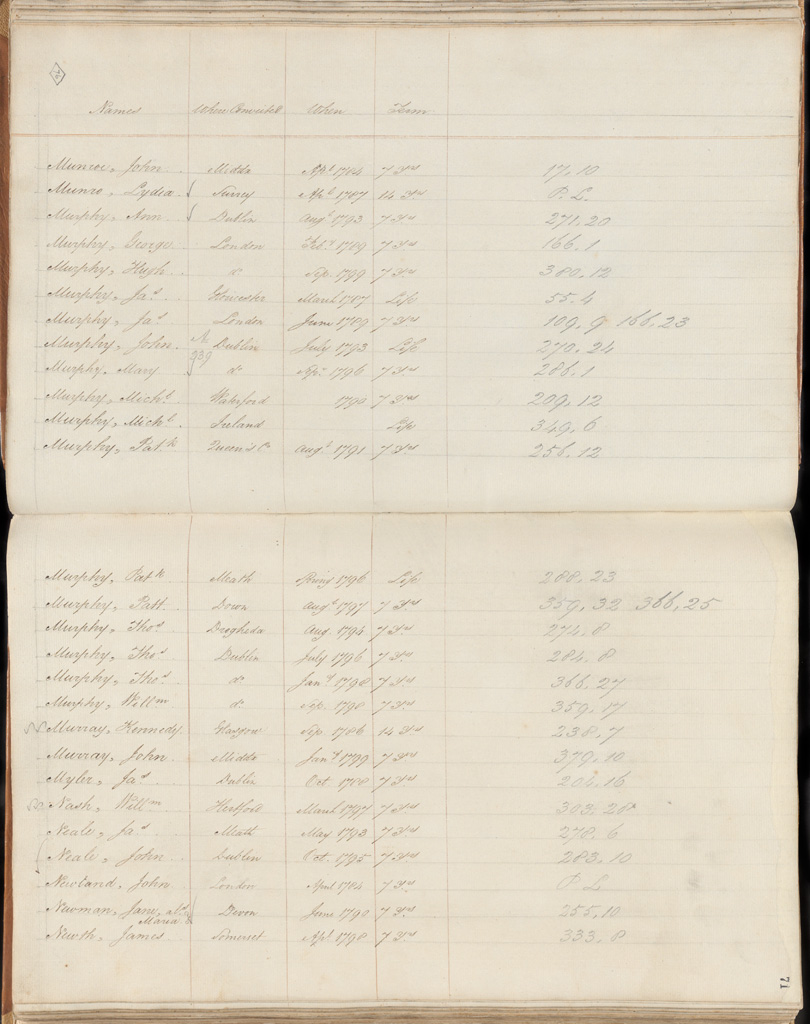 Names When Convicted When Term
Munroe, John Middx Apl 1784 7 Yrs 17.10
Munro, Lydia Surrey Apl 1787 14 Yrs P. L.
Murphy, Ann Dublin Augt 1793 7 Yrs 271.20
Murphy, George London Feby 1789 7 Yrs 166.1
Murphy, Hugh do Sep. 1799 7 Yrs 380.12
Murphy, Jas March 1787 Life 55.4
Murphy, Jas London June 1789 7 Yrs 109.9 166.23
Murphy, John Dublin July 1793 Life 270.24
Murphy, Mary do 1796 7 Yrs 286.1
Murphy, Michl Waterford 1790 7 Yrs 209.12
Murphy, Michl Ireland Life 349.6
Murphy, Patk Queen's Co Augt 1791 7 Yrs 256.12
Murphy, Patk Meath Spring 1796 Life 288.23
Murphy, Patt Down Augt 1797 7 Yrs 359.32 366.25
Murphy, Thos Drogheda Aug. 1794 7 Yrs 274.8
Murphy, Thos Dublin July 1796 7 Yrs 284.8
Murphy, Thos do Jany 1798 7 Yrs 366.27
Murphy, Willm do Sep. 1798 7 Yrs 359.17
Murray, Kennedy Glasgow Sep. 1786 14 Yrs 238.7
Murray, John Middx Jany 1799 7 Yrs 379.10
Myler, Jas Dublin Oct. 1788 7 Yrs 204.16
Nash, Willm Hertford March 1797 7 Yrs 303.28
Neale, Jas Meath May 1793 7 Yrs 278.6
Neale, John Dublin Oct. 1795 7 Yrs 283.10
Newland, John London April 1784 7 Yrs P. L
Newman, Jane, als Devon June 1790 7 Yrs 255.10
Maria
Newth, James Somerset Apl 1798 7 Yrs 333.8
71